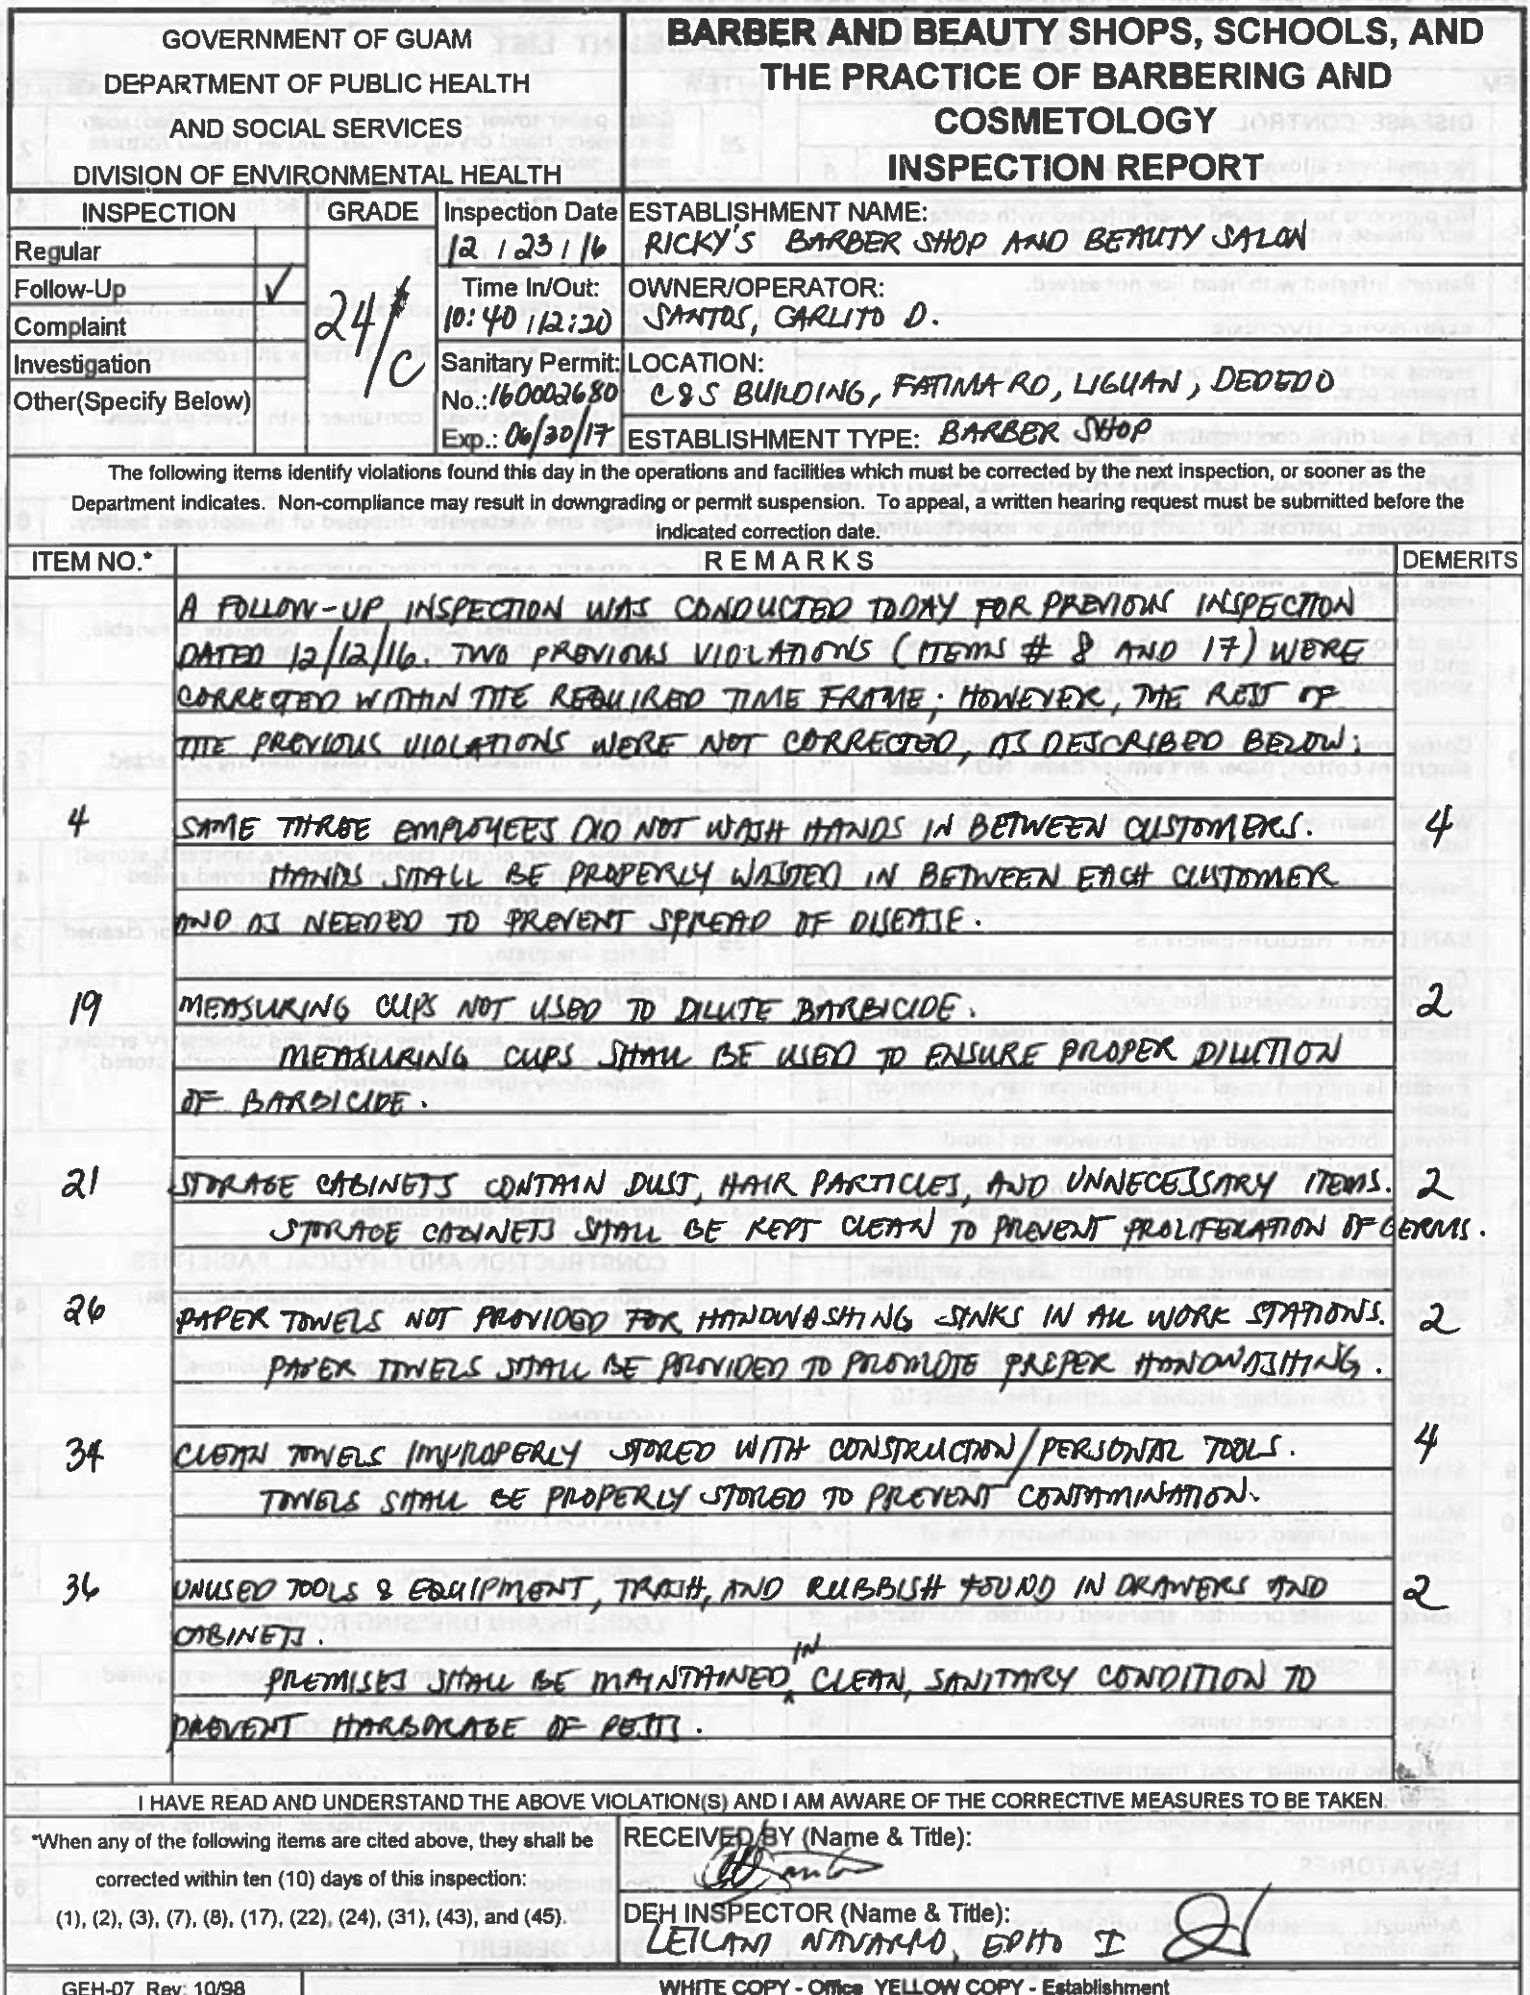 GOVERNMENT OF GUAM
DEPARTMENT OF PUBLIC HEALTH
AND SOCIAL SERVICES
DIVISION OF ENVIRONMENTAL HEALTH
BARBER AND BEAUTY SHOPS, SCHOOLS, AND
THE PRACTICE OF BARBERING AND
COSMETOLOGY
INSPECTION REPORT
INSPECTION
Regular
Follow-Up ✓
Complaint
Investigation
Other(Specify Below)
GRADE
24/C
Inspection Date
12 / 23 / 16
Time In/Out:
10:40 / 12:20
Sanitary Permit:
No.: 160002680
Exp.: 06/30/17
ESTABLISHMENT NAME:
RICKY'S BARBER SHOP AND BEAUTY SALON
OWNER/OPERATOR:
SANTOS, CARLITO D.
LOCATION:
C&S BUILDING, FATIMA RD, LIGUAN, DEDEDO
ESTABLISHMENT TYPE: BARBER SHOP
The following items identify violations found this day in the operations and facilities which must be corrected by the next inspection, or sooner as the
Department indicates. Non-compliance may result in downgrading or permit suspension. To appeal, a written hearing request must be submitted before the
indicated correction date.
ITEM NO.* REMARKS DEMERITS
A FOLLOW-UP INSPECTION WAS CONDUCTED TODAY FOR PREVIOUS INSPECTION
DATED 12/12/16. TWO PREVIOUS VIOLATIONS (ITEMS # 8 AND 17) WERE
CORRECTED WITHIN THE REQUIRED TIME FRAME; HOWEVER, THE REST OF
THE PREVIOUS VIOLATIONS WERE NOT CORRECTED, AS DESCRIBED BELOW:
4 SAME THREE EMPLOYEES DID NOT WASH HANDS IN BETWEEN CUSTOMERS. 4
HANDS SHALL BE PROPERLY WASHED IN BETWEEN EACH CUSTOMER
AND AS NEEDED TO PREVENT SPREAD OF DISEASE.
19 MEASURING CUPS NOT USED TO DILUTE BARBICIDE. 2
MEASURING CUPS SHALL BE USED TO ENSURE PROPER DILUTION
OF BARBICIDE.
21 STORAGE CABINETS CONTAIN DUST, HAIR PARTICLES, AND UNNECESSARY ITEMS. 2
STORAGE CABINETS SHALL BE KEPT CLEAN TO PREVENT PROLIFERATION OF GERMS.
26 PAPER TOWELS NOT PROVIDED FOR HANDWASHING SINKS IN ALL WORK STATIONS. 2
PAPER TOWELS SHALL BE PROVIDED TO PROMOTE PROPER HANDWASHING.
34 CLEAN TOWELS IMPROPERLY STORED WITH CONSTRUCTION/PERSONAL TOOLS. 4
TOWELS SHALL BE PROPERLY STORED TO PREVENT CONTAMINATION.
36 UNUSED TOOLS & EQUIPMENT, TRASH, AND RUBBISH FOUND IN DRAWERS AND 2
CABINETS.
PREMISES SHALL BE MAINTAINED IN CLEAN, SANITARY CONDITION TO
PREVENT HARBORAGE OF PESTS.
I HAVE READ AND UNDERSTAND THE ABOVE VIOLATION(S) AND I AM AWARE OF THE CORRECTIVE MEASURES TO BE TAKEN.
*When any of the following items are cited above, they shall be
corrected within ten (10) days of this inspection:
(1), (2), (3), (7), (8), (17), (22), (24), (31), (43), and (45).
RECEIVED BY (Name & Title):
DEH INSPECTOR (Name & Title):
LEILANI NAVARRO, EPHO I
GEH-07 Rev: 10/98
WHITE COPY - Office YELLOW COPY - Establishment